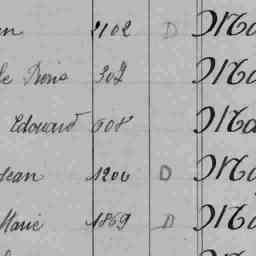 2102 D Ma
302 Ma
Edouard 608 Ma
Jean 1200 D Ma
Marie 1869 D Ma